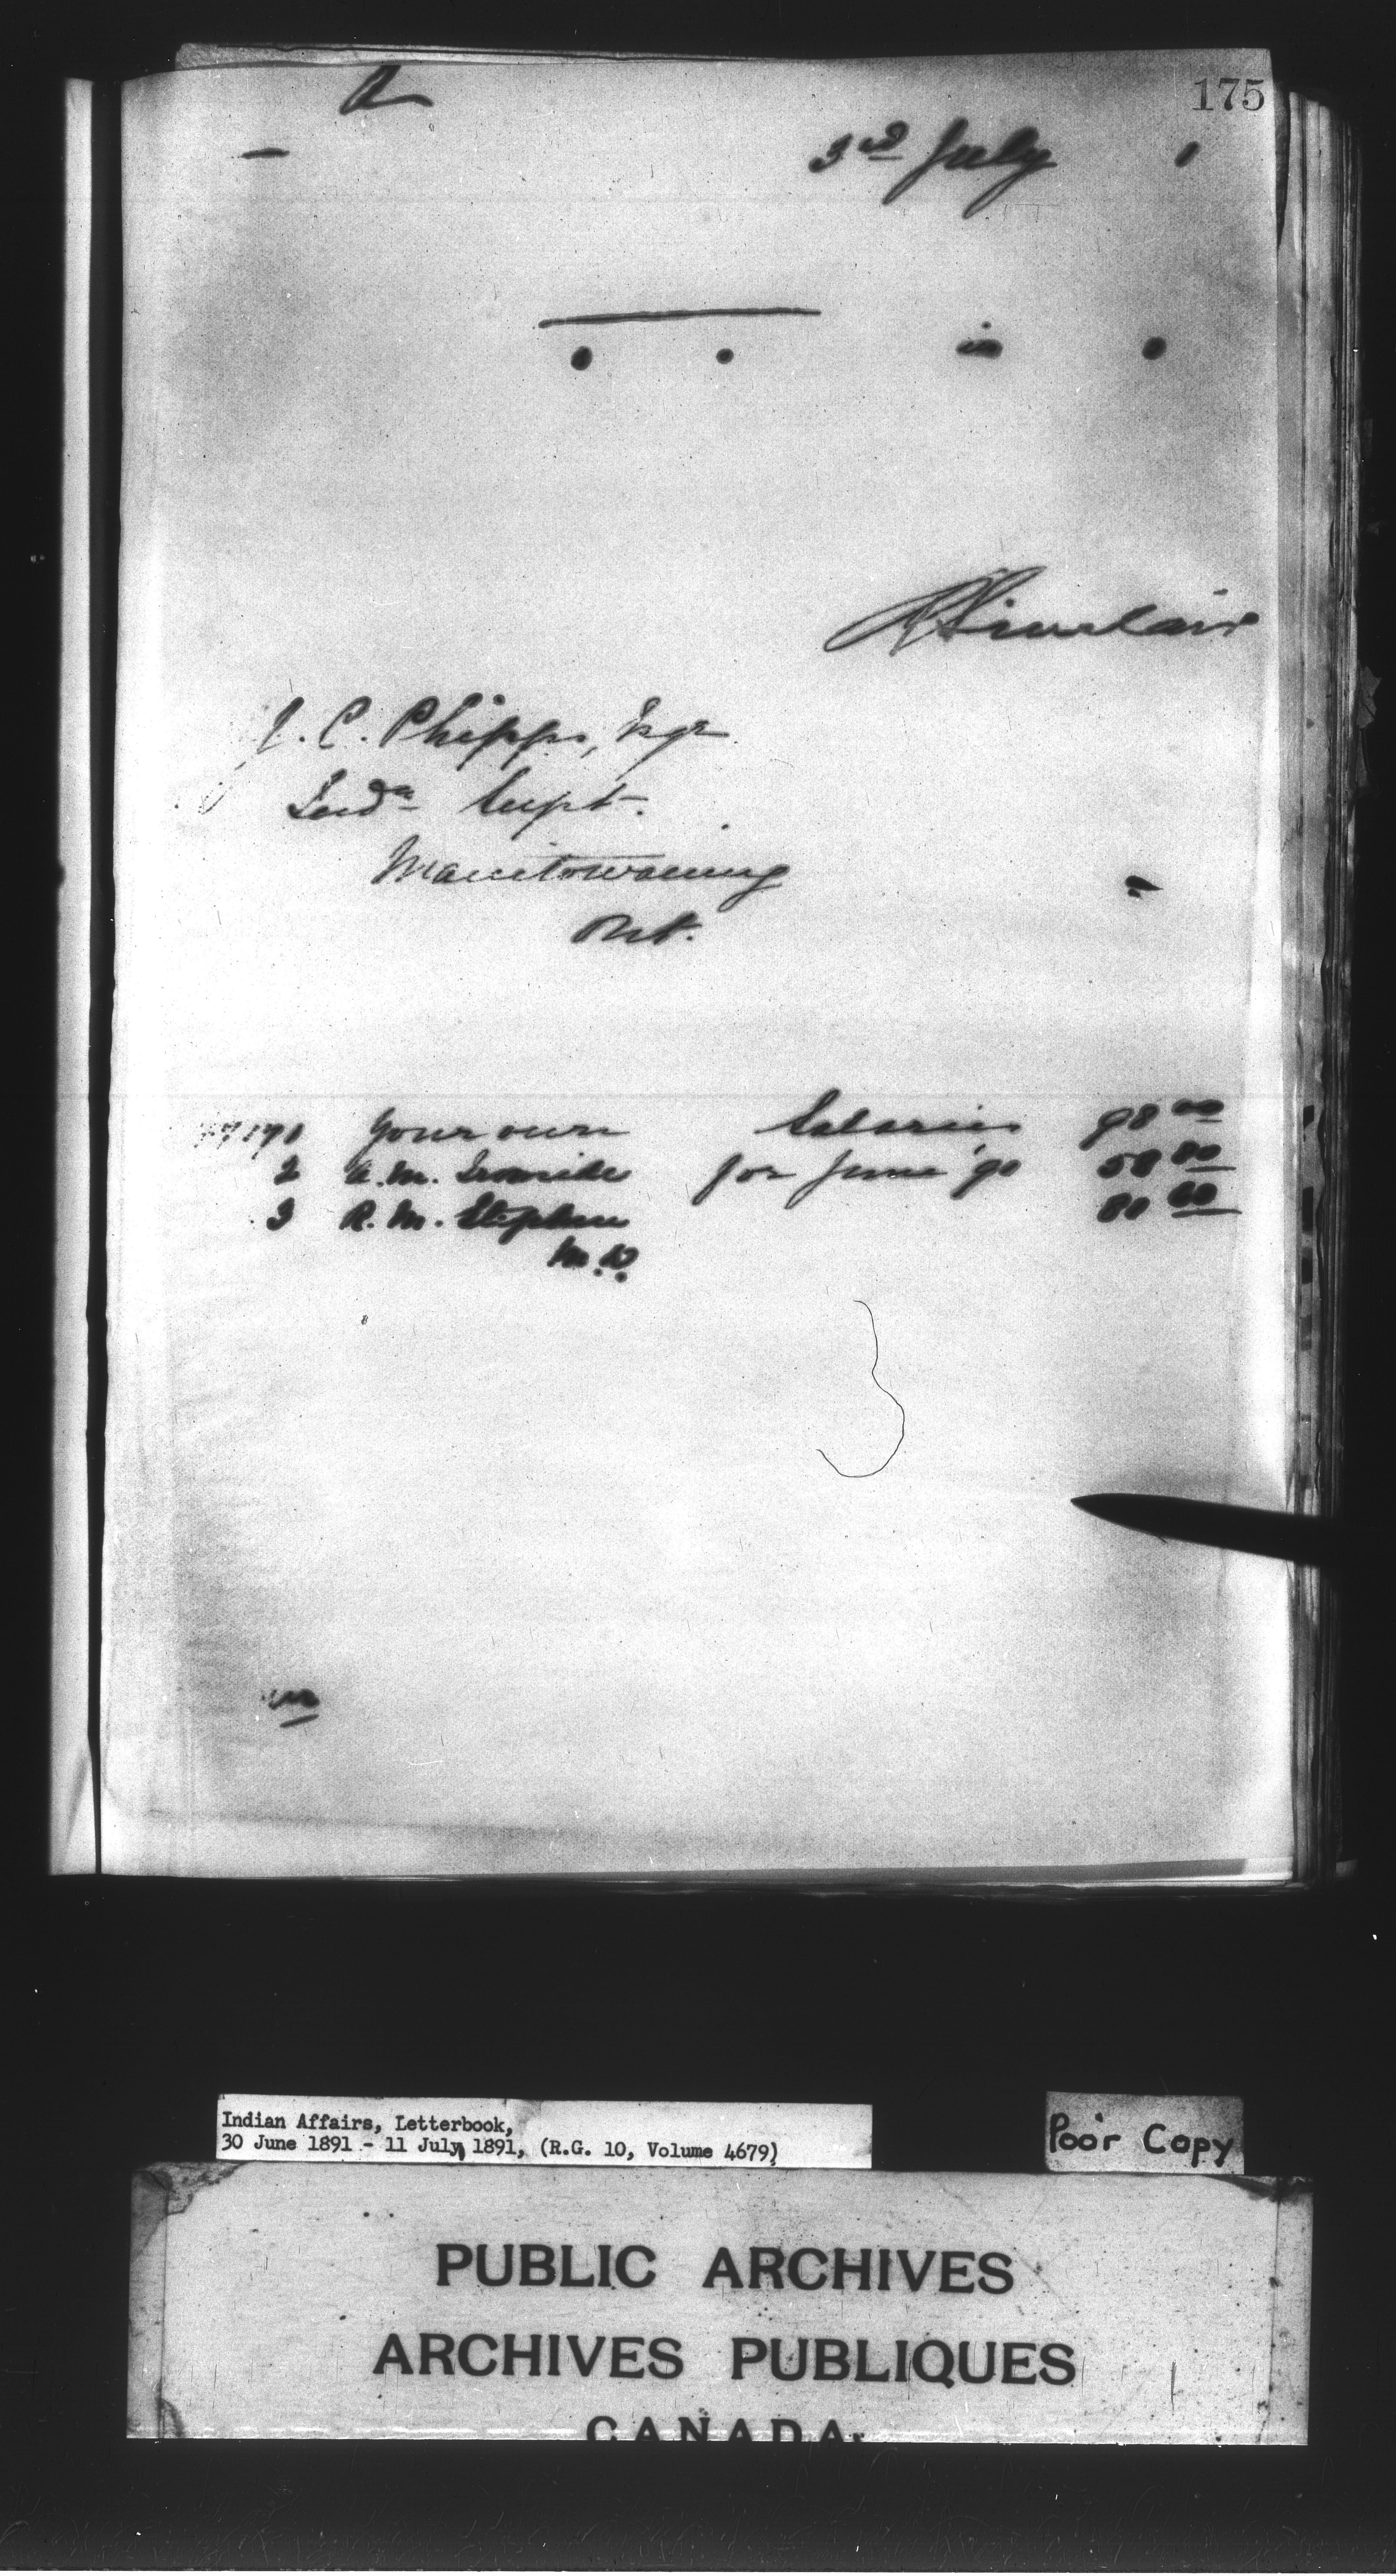 175
A
3rd July 1
R Sinclair
J. C. Phipps, Esqr
Indn Supt.
Manitowaning
Ont.
1 Your own Salaries 98 00
2 A. M. Ironside for June '90 58 80
3 R. M. Stephen 80
M.D.
Indian Affairs, Letterbook,
30 June 1891 - 11 July 1891, (R.G. 10, Volume 4679)
Poor Copy
PUBLIC ARCHIVES
ARCHIVES PUBLIQUES
CANADA